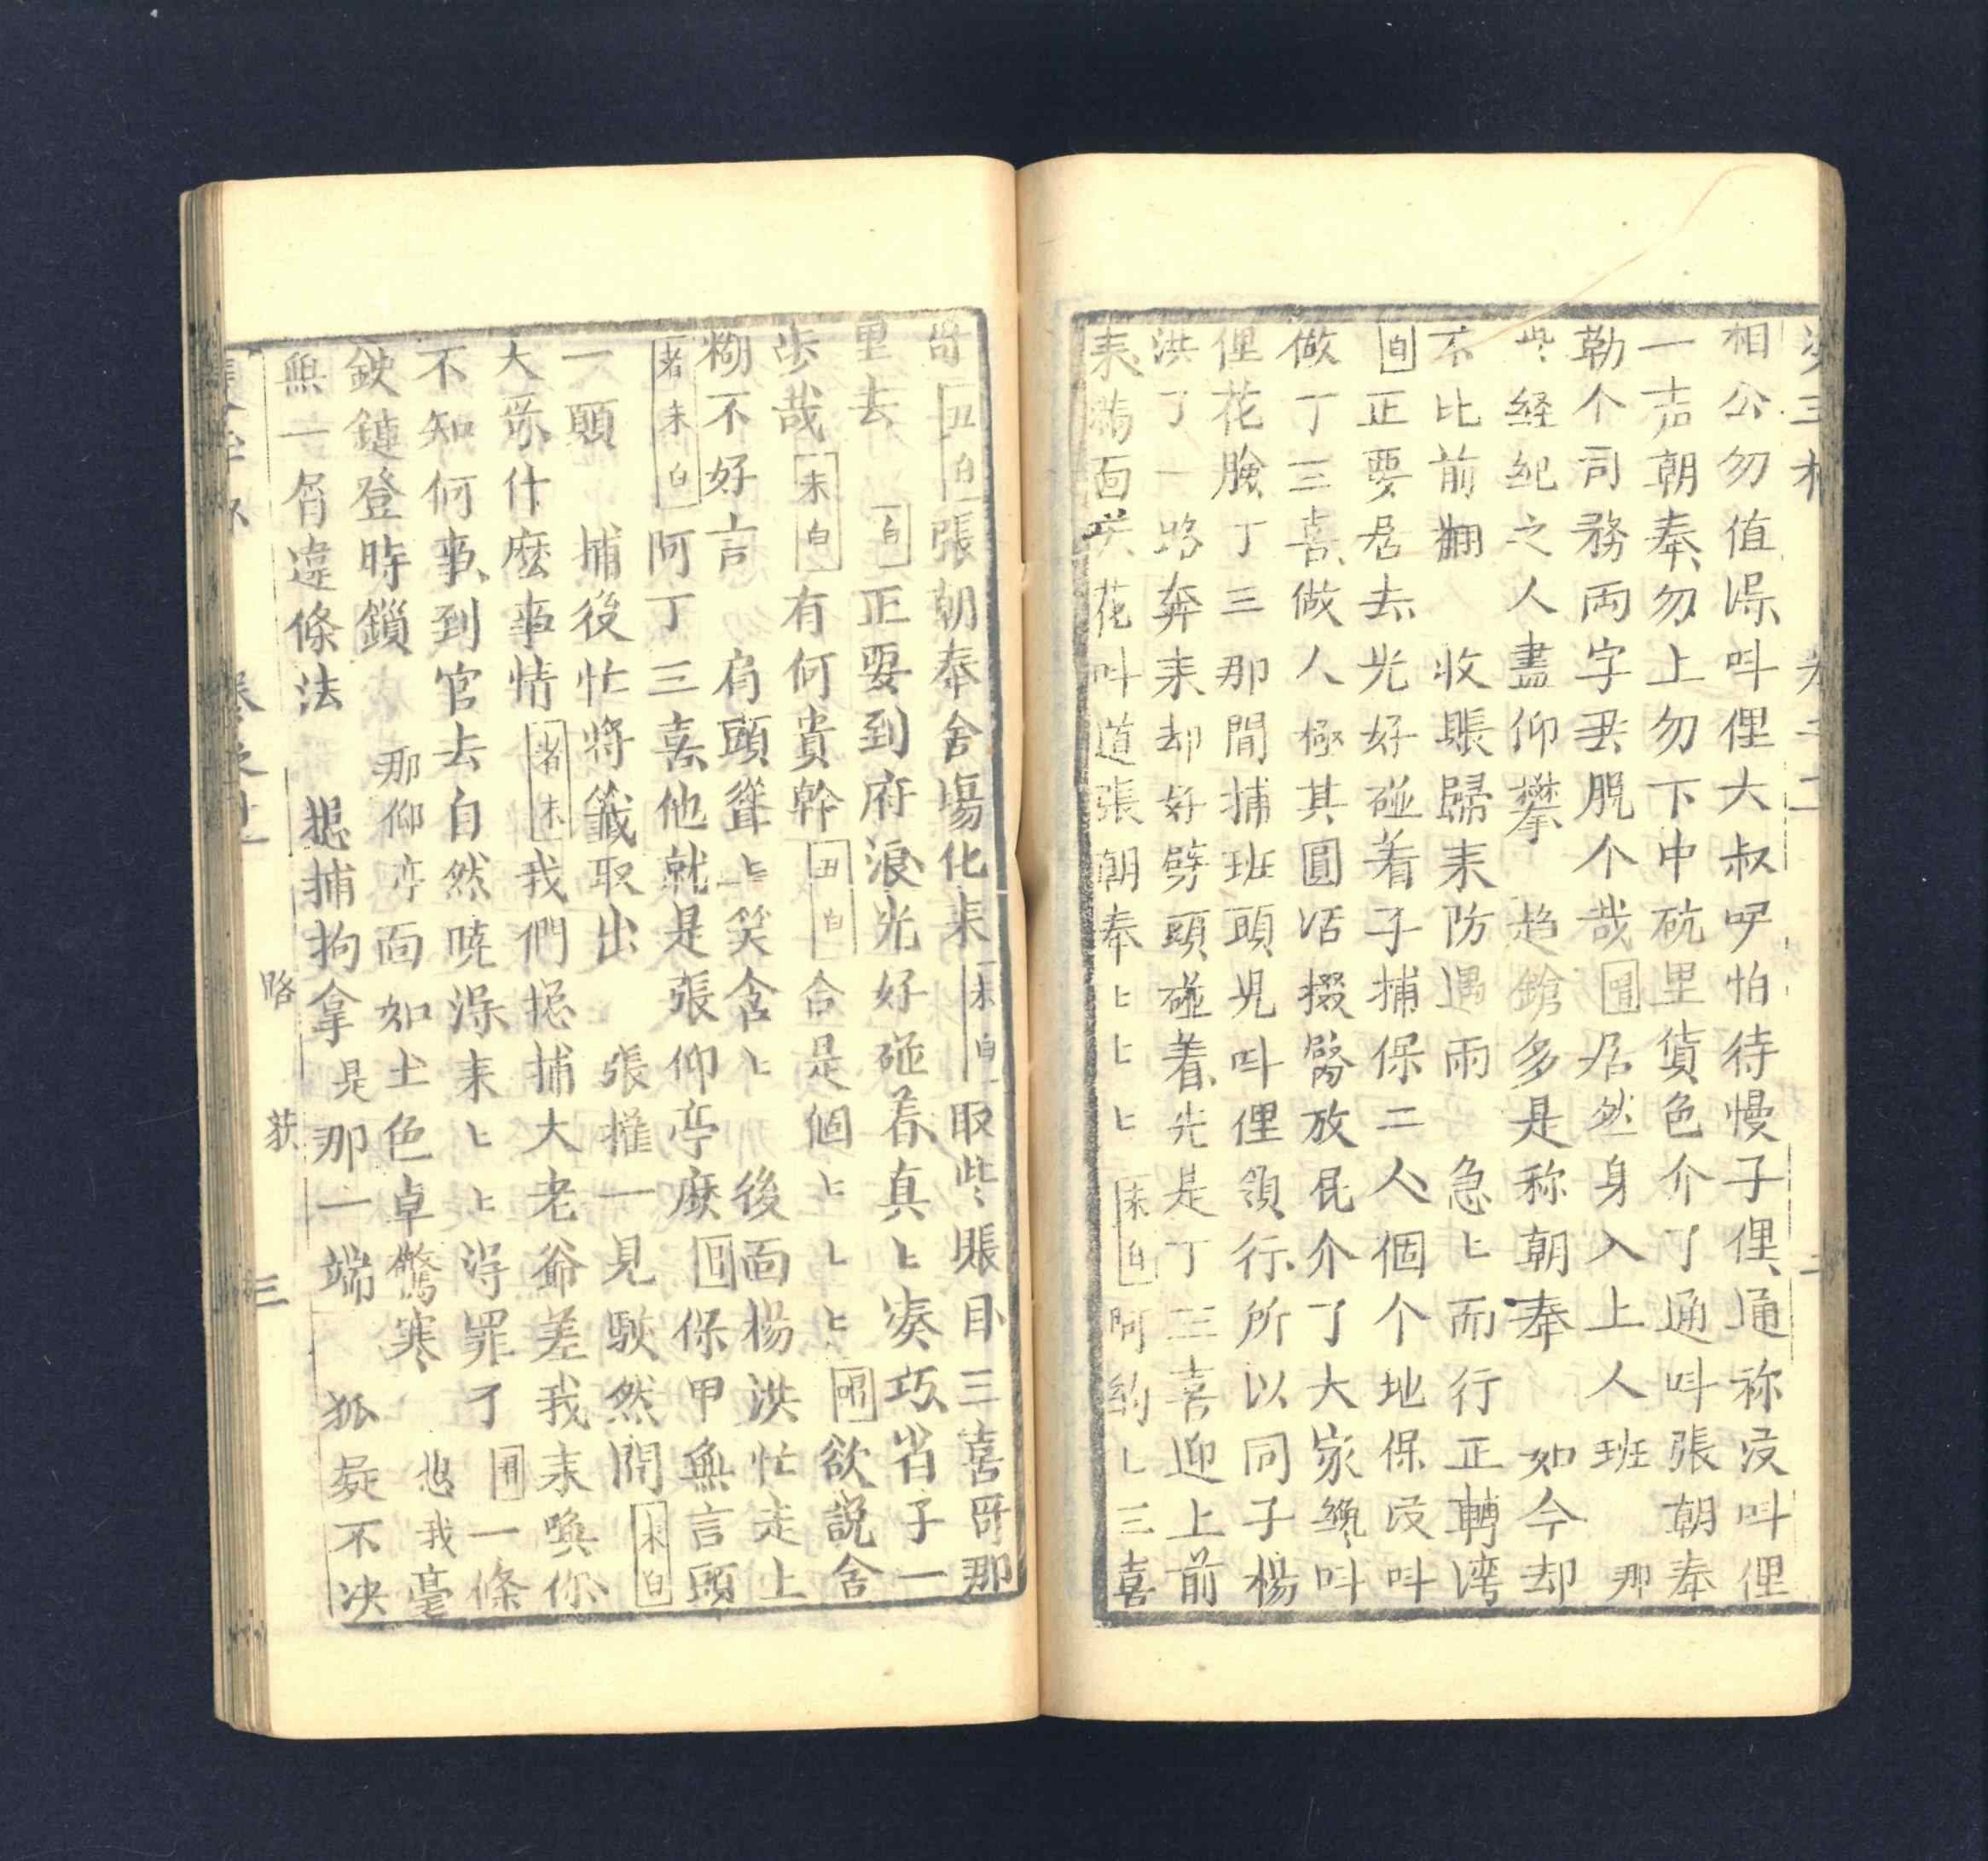 相公勿值淂叫俚大叔吚怕待慢子俚通祢沒叫俚
一声朝奉勿上勿下中砊里貨色介了通叫張朝奉
勒个司務兩字丟脱个哉 居然身入上人班 那
些経紀之人盡仰攀 趋鎗多是称朝奉 如今却
不比前翻 收賬歸来防遇雨 急〻而行正轉湾
白正要居去光好碰着子捕保二人個个地保沒叫
做丁三喜做人極其圓活掇臀放屁介了大家纔叫
俚花臉丁三那間捕班頭見叫俚領行所以同子楊
洪了一路奔来却好劈頭碰着先是丁三喜迎上前
来満面笑花叫道張朝奉〻〻〻末白阿約〻三喜
哥丑白張朝奉舍塲化来末白取些賬目三喜哥那
里去 白正要到府浪光好碰着真〻凑巧省子一
步哉末白有何貴幹丑白合是個〻〻〻唱欲說舍
糊不好言 肩頭聳〻笑含〻 後面楊洪忙走上
者末白阿丁三喜他就是張仰亭麽 保甲無言頭
一顛 捕後忙將籖取出 張搉一見駭然問末白
大爷什麽事情者末我們捴捕大老爺差我来喚你
不知何事到官去自然暁淂来〻〻淂罪了 一條
鉄鏈登時鎖 那仰亭面如土色卓驚寒 悲我毫
無一屑違條法 捴捕拘拿是那一端 狐疑不决
略 荻 三